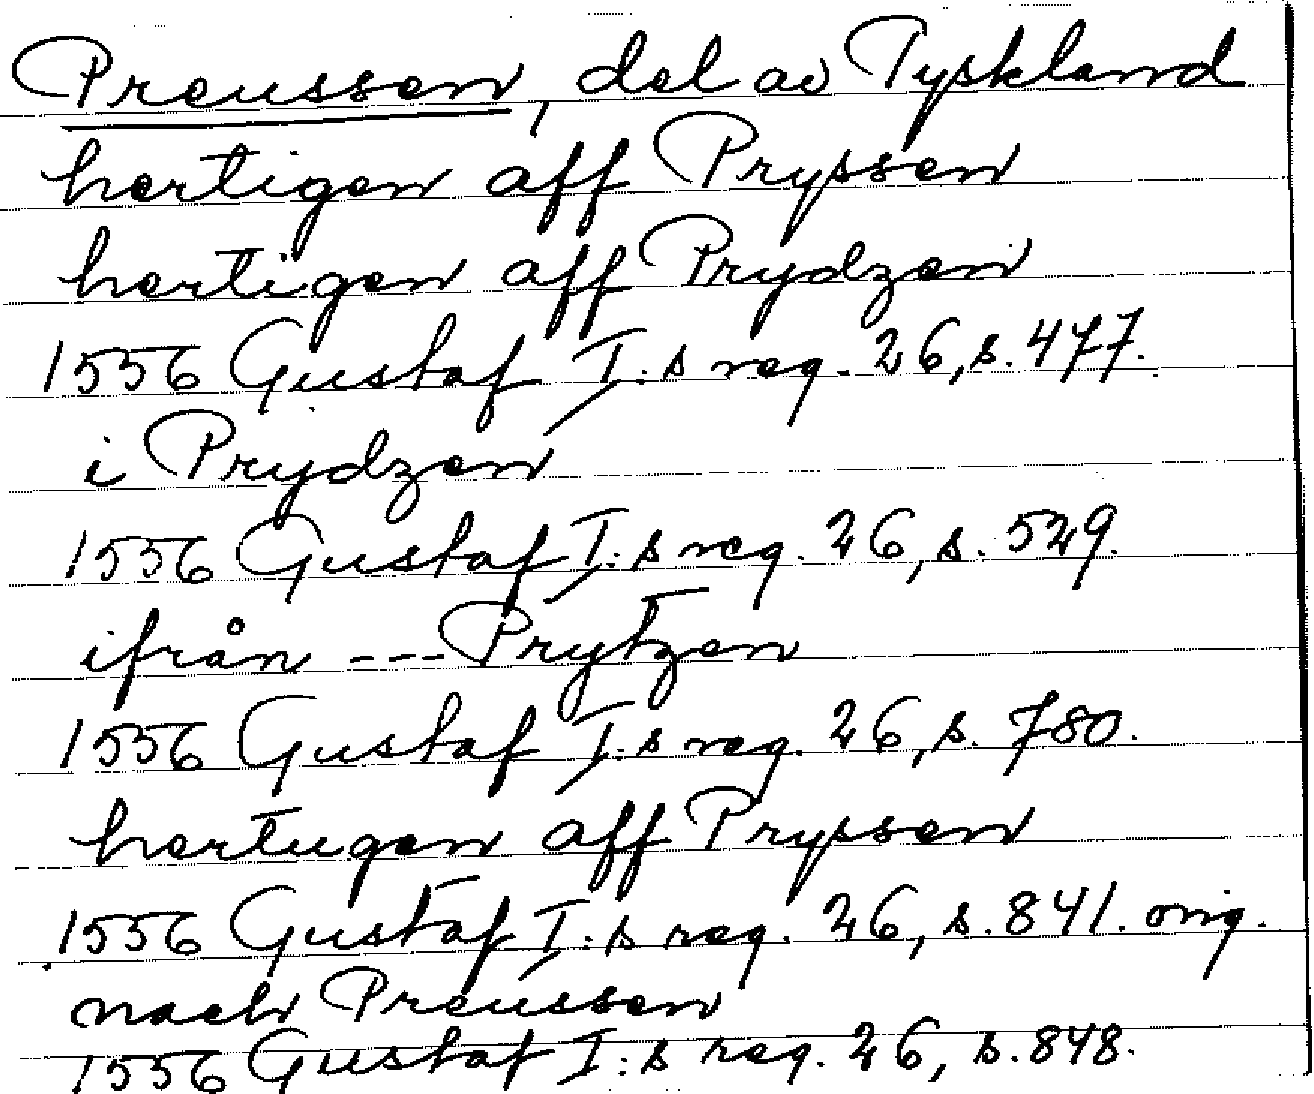 Preussen, del av Tyskland
hertigen aff Pryssen
hertigen aff Prydzen
1556 Gustaf I:s reg. 26, s. 477.
i Prydzen
1556 Gustaf I:s reg. 26, s. 529.
ifrån --- Prytzen
1556 Gustaf I:s reg. 26, s. 780.
hertugen aff Pryssen
1556 Gustaf I:s reg. 26, s. 841. orig.
nach Preussen
1556 Gustaf I:s reg. 26, s. 848.